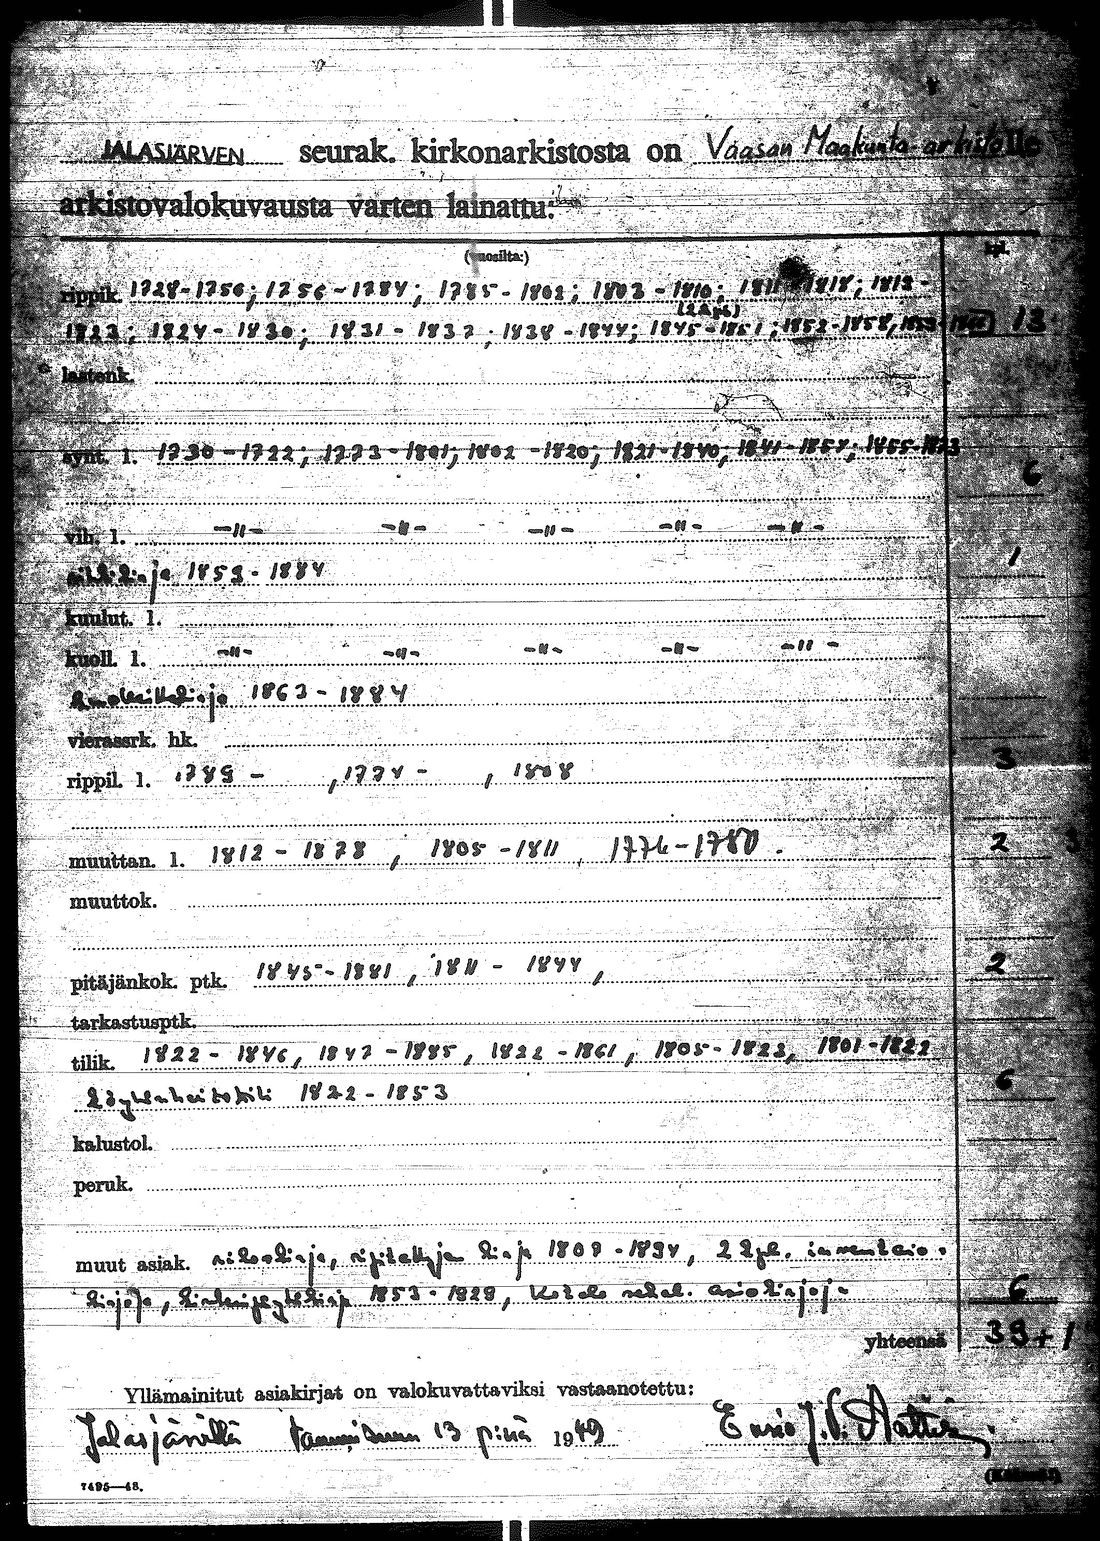 JALASJÄRVEN seurak. kirkonarkistosta on Vaasan Maakunta-arkistolle
arkistovalokuvausta varten lainattu:
(vuosilta:) kpl.
rippik. 1728-1756; 1756-1784; 1785-1802; 1803-1810; 1811-1818; 1818-
(2 kpl)
1823; 1824-1830; 1831-1837; 1838-1844; 1845-1851; 1852-1858, 13
lastenk.
synt. l. 1730-1722; 1773-1801; 1802-1820; 1821-1840, 1841-1854; 1855-1873
6
vih. l. -"- -"- -"- -"- -"-
1858-1884 1
kuulut. l.
kuoll. l. -"- -"- -"- -"- -"-
1863-1884
vierassrk. hk.
rippil. l. 1785 - , 1774 - , 1808 3
muuttan. l. 1812-1878, 1805-1811, 1774-1780. 2 3
muuttok.
pitäjänkok. ptk. 1845-1881, 1811-1844, 2
tarkastusptk.
tilik. 1822-1846, 1847-1885, 1822-1861, 1805-1823, 1801-1822
1822-1853 6
kalustol.
peruk.
muut asiak. kirja 1809-1894, 2 kpl.
1853-1829, 6
yhteensä 39+1
Yllämainitut asiakirjat on valokuvattaviksi vastaanotettu:
Jalasjärvellä tammikuun 13 p:nä 1949 Ensio J.
7495—48.